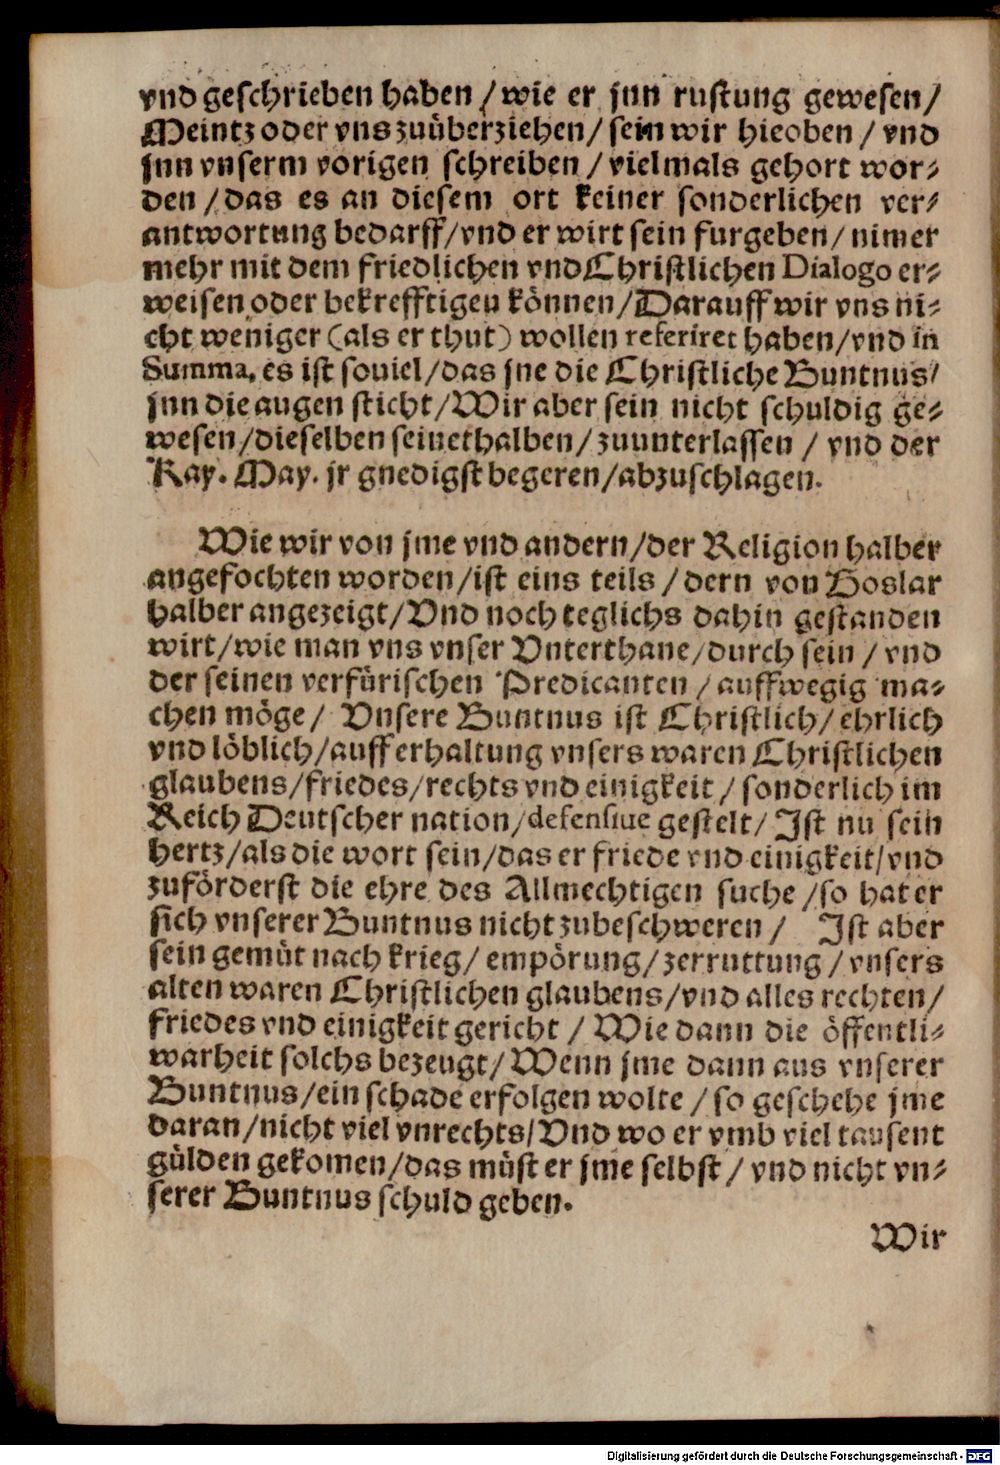 vnd geschrieben haben / wie er jnn rustung gewesen /
Meintz oder vns zuüberziehen / sein wir hieoben / vnd
jnn vnserm vorigen schreiben / vielmals gehort wor⸗
den / das es an diesem ort keiner sonderlichen ver⸗
antwortung bedarff / vnd er wirt sein furgeben / nimer
mehr mit dem friedlichen vnd Christlichen Dialogo er⸗
weisen oder bekrefftigen können / Darauff wir vns ni⸗
cht weniger (als er thut) wollen referiret haben / vnd in
Summa, es ist souiel / das jne die Christliche Buntnus /
jnn die augen sticht / Wir aber sein nicht schuldig ge⸗
wesen / dieselben seinethalben / zuunterlassen / vnd der
Kay. May. jr gnedigst begeren / abzuschlagen.
Wie wir von jme vnd andern / der Religion halber
angefochten worden / ist eins teils / dern von Goslar
halber angezeigt / Vnd noch teglichs dahin gestanden
wirt / wie man vns vnser Vnterthane / durch sein / vnd
der seinen verfürischen Predicanten / auffwegig ma⸗
chen möge / Vnsere Buntnus ist Christlich / ehrlich
vnd löblich / auff erhaltung vnsers waren Christlichen
glaubens / friedes / rechts vnd einigkeit / sonderlich im
Reich Deutscher nation / defensiue gestelt / Ist nu sein
hertz / als die wort sein / das er friede vnd einigkeit / vnd
zuförderst die ehre des Allmechtigen suche / so hat er
sich vnserer Buntnus nicht zubeschweren / Ist aber
sein gemüt nach krieg / empörung / zerruttung / vnsers
alten waren Christlichen glaubens / vnd alles rechten /
friedes vnd einigkeit gericht / Wie dann die öffentli⸗
warheit solchs bezeugt / Wenn jme dann aus vnserer
Buntnus / ein schade erfolgen wolte / so geschehe jme
daran / nicht viel vnrechts / Vnd wo er vmb viel tausent
gülden gekomen / das müst er jme selbst / vnd nicht vn⸗
serer Buntnus schuld geben.
Wir
Digitalisierung gefördert durch die Deutsche Forschungsgemeinschaft - DFG